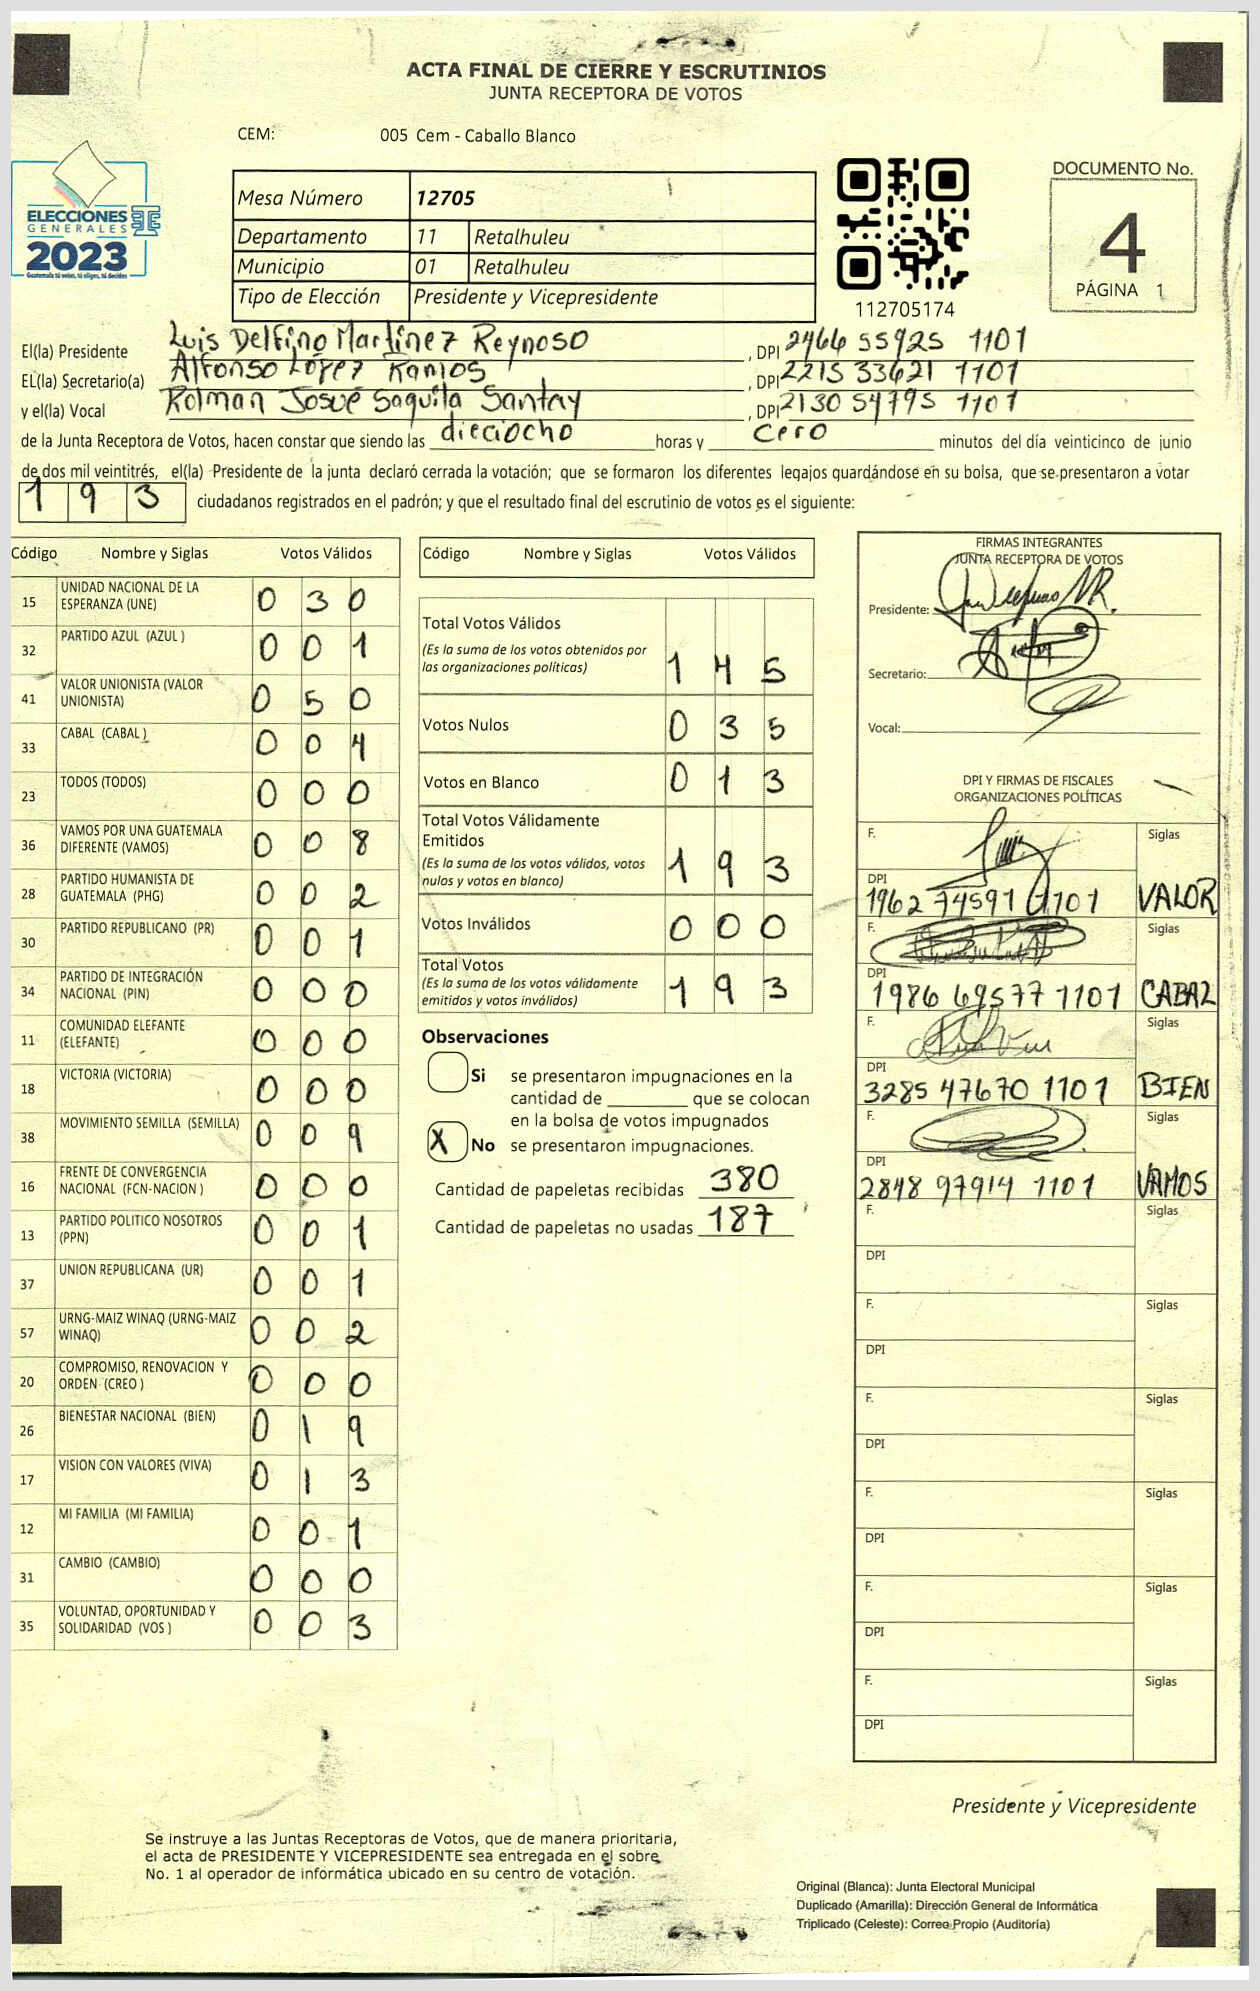 ACTA FINAL DE CIERRE Y ESCRUTINIOS
JUNTA RECEPTORA DE VOTOS
CEM: 005 Cem - Caballo Blanco
ELECCIONES
GENERALES
2023
Guatemala tú votas, tú eliges, tú decides
Mesa Número 12705
Departamento 11 Retalhuleu
Municipio 01 Retalhuleu
Tipo de Elección Presidente y Vicepresidente
112705174
DOCUMENTO No.
4
PÁGINA 1
El(la) Presidente Luis Delfino Martínez Reynoso , DPI 2466 55925 1101
EL(la) Secretario(a) Alfonso López Ramos , DPI 2215 33621 1101
y el(la) Vocal Rolman Josué Saquila Santay , DPI 2130 54795 1101
de la Junta Receptora de Votos, hacen constar que siendo las dieciocho horas y cero minutos del día veinticinco de junio
de dos mil veintitrés, el(la) Presidente de la junta declaró cerrada la votación; que se formaron los diferentes legajos guardándose en su bolsa, que se presentaron a votar
193 ciudadanos registrados en el padrón; y que el resultado final del escrutinio de votos es el siguiente:
Código Nombre y Siglas Votos Válidos
15 UNIDAD NACIONAL DE LA ESPERANZA (UNE) 0 3 0
32 PARTIDO AZUL (AZUL ) 0 0 1
41 VALOR UNIONISTA (VALOR UNIONISTA) 0 5 0
33 CABAL (CABAL ) 0 0 4
23 TODOS (TODOS) 0 0 0
36 VAMOS POR UNA GUATEMALA DIFERENTE (VAMOS) 0 0 8
28 PARTIDO HUMANISTA DE GUATEMALA (PHG) 0 0 2
30 PARTIDO REPUBLICANO (PR) 0 0 1
34 PARTIDO DE INTEGRACIÓN NACIONAL (PIN) 0 0 0
11 COMUNIDAD ELEFANTE (ELEFANTE) 0 0 0
18 VICTORIA (VICTORIA) 0 0 0
38 MOVIMIENTO SEMILLA (SEMILLA) 0 0 9
16 FRENTE DE CONVERGENCIA NACIONAL (FCN-NACION ) 0 0 0
13 PARTIDO POLITICO NOSOTROS (PPN) 0 0 1
37 UNION REPUBLICANA (UR) 0 0 1
57 URNG-MAIZ WINAQ (URNG-MAIZ WINAQ) 0 0 2
20 COMPROMISO, RENOVACION Y ORDEN (CREO ) 0 0 0
26 BIENESTAR NACIONAL (BIEN) 0 1 9
17 VISION CON VALORES (VIVA) 0 1 3
12 MI FAMILIA (MI FAMILIA) 0 0 1
31 CAMBIO (CAMBIO) 0 0 0
35 VOLUNTAD, OPORTUNIDAD Y SOLIDARIDAD (VOS ) 0 0 3
Código Nombre y Siglas Votos Válidos
Total Votos Válidos
(Es la suma de los votos obtenidos por
las organizaciones políticas) 1 4 5
Votos Nulos 0 3 5
Votos en Blanco 0 1 3
Total Votos Válidamente
Emitidos
(Es la suma de los votos válidos, votos
nulos y votos en blanco) 1 9 3
Votos Inválidos 0 0 0
Total Votos
(Es la suma de los votos válidamente
emitidos y votos inválidos) 1 9 3
Observaciones
Si se presentaron impugnaciones en la
cantidad de ________ que se colocan
en la bolsa de votos impugnados
X No se presentaron impugnaciones.
Cantidad de papeletas recibidas 380
Cantidad de papeletas no usadas 187
FIRMAS INTEGRANTES
JUNTA RECEPTORA DE VOTOS
Presidente:
Secretario:
Vocal:
DPI Y FIRMAS DE FISCALES
ORGANIZACIONES POLÍTICAS
F. Siglas
DPI
1962 74591 1101 VALOR
F. Siglas
DPI
1986 69577 1101 CABAL
F. Siglas
DPI
3285 47670 1101 BIEN
F. Siglas
DPI
2848 97914 1101 VAMOS
F. Siglas
DPI
F. Siglas
DPI
F. Siglas
DPI
F. Siglas
DPI
F. Siglas
DPI
F. Siglas
DPI
Presidente y Vicepresidente
Se instruye a las Juntas Receptoras de Votos, que de manera prioritaria,
el acta de PRESIDENTE Y VICEPRESIDENTE sea entregada en el sobre
No. 1 al operador de informática ubicado en su centro de votación.
Original (Blanca): Junta Electoral Municipal
Duplicado (Amarilla): Dirección General de Informática
Triplicado (Celeste): Correo Propio (Auditoría)